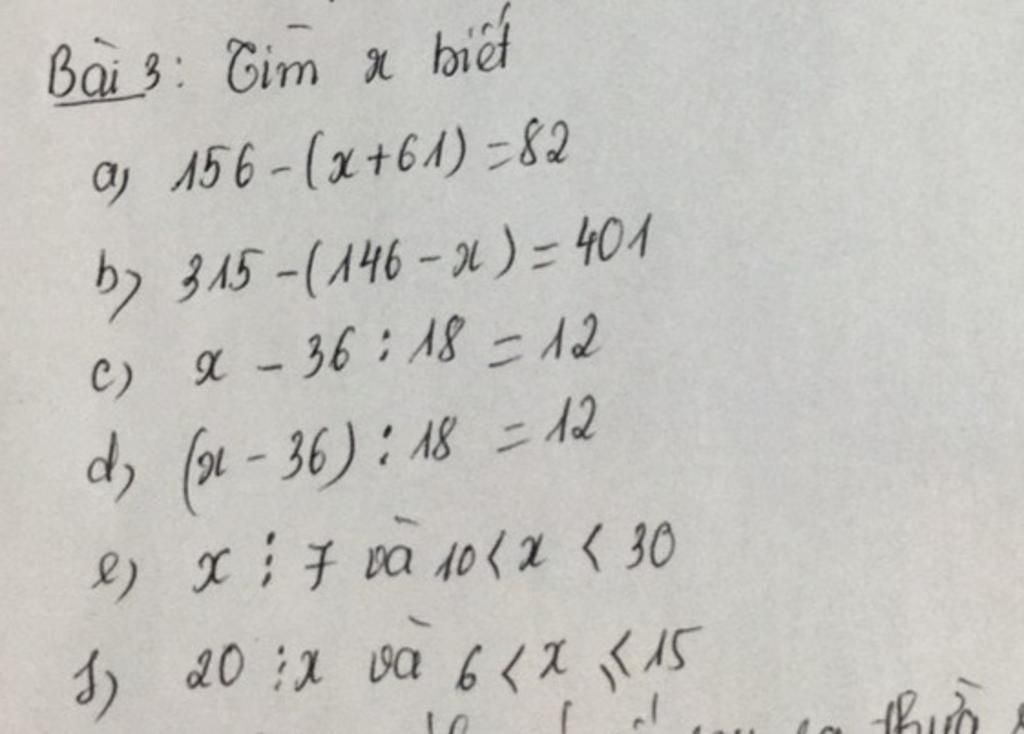 Bài 3: Tìm x biết
a) 156 - (x + 61) = 82
b) 315 - (146 - x) = 401
c) x - 36 : 18 = 12
d) (x - 36) : 18 = 12
e) x ⋮ 7 và 10 < x < 30
f) 20 ⋮ x và 6 < x ⩽ 15